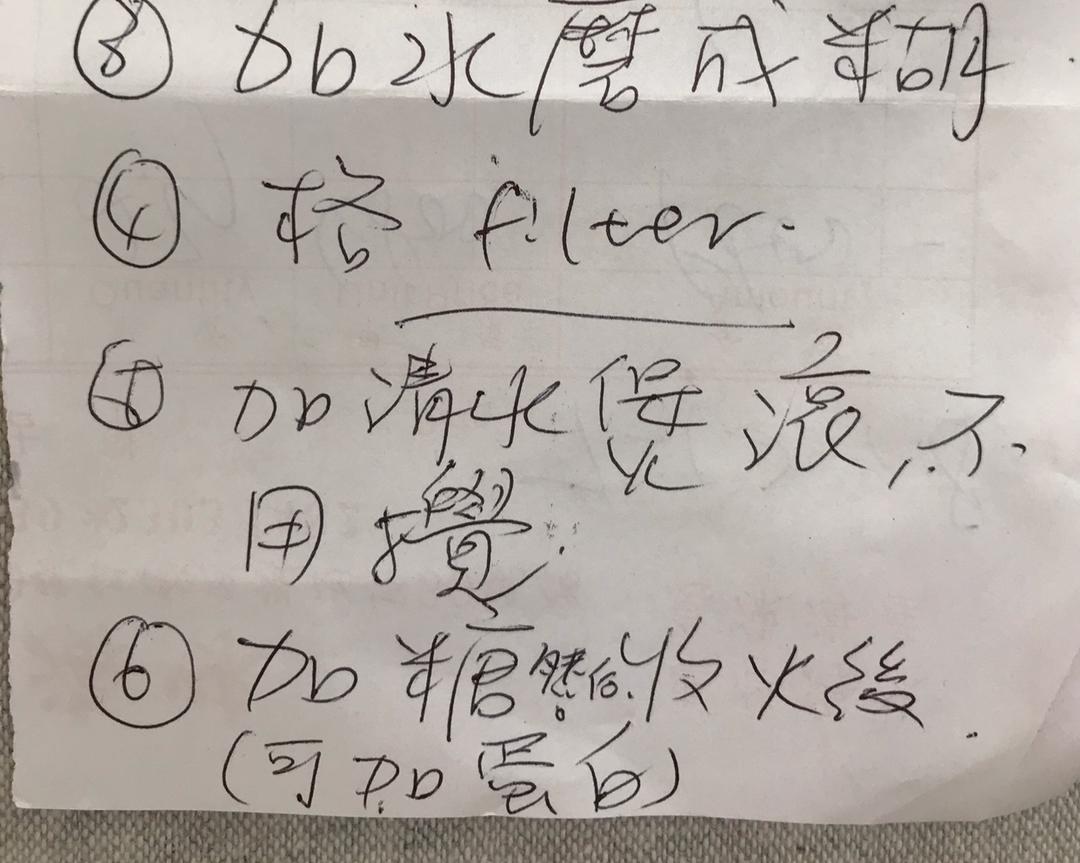 ③ 加水磨成糊
④ 格 filter.
⑤ 加清水煲滾，不
用攪.
⑥ 加糖然后收火後.
(可加蛋白)